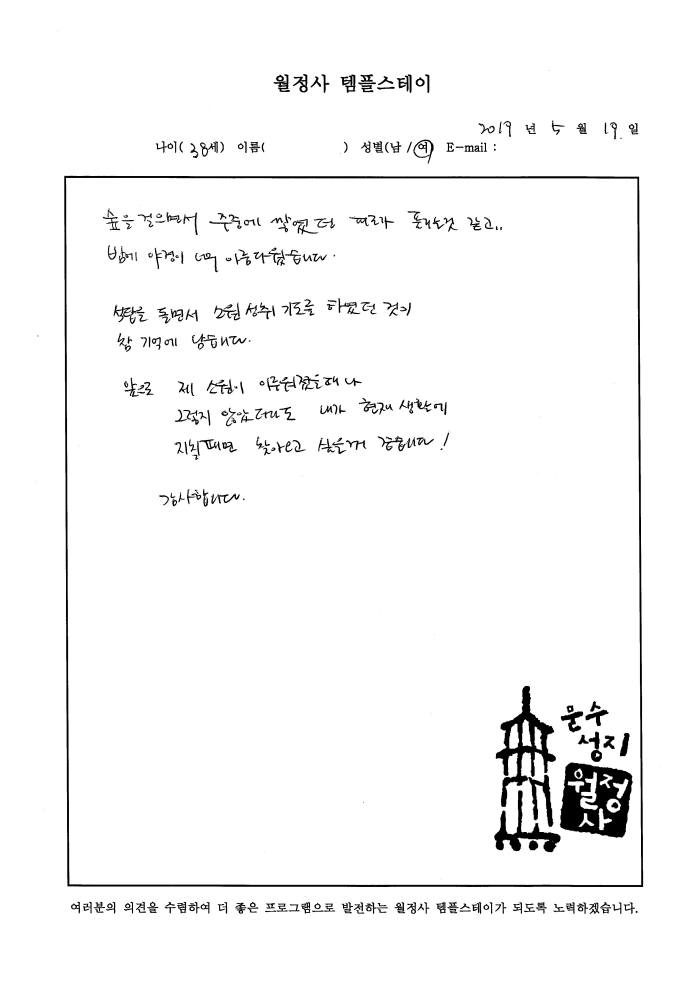 월정사 템플스테이
2019 년 5 월 19. 일
나이( 38세) 이름( ) 성별(남 / 여) E-mail :
숲을 걸으면서 주중에 쌓였던 피로가 풀리는것 같고..
밤에 야경이 너무 아름다웠습니다.
석탑을 돌면서 소원성취 기도를 하였던 것이
참 기억에 남습니다.
앞으로 제 소원이 이루워졌을때나
그렇지 않았더라도 내가 현재 생활에
지칠때면 찾아오고 싶을거 같습니다!
감사합니다.
문수
성지
월정
사
여러분의 의견을 수렴하여 더 좋은 프로그램으로 발전하는 월정사 템플스테이가 되도록 노력하겠습니다.